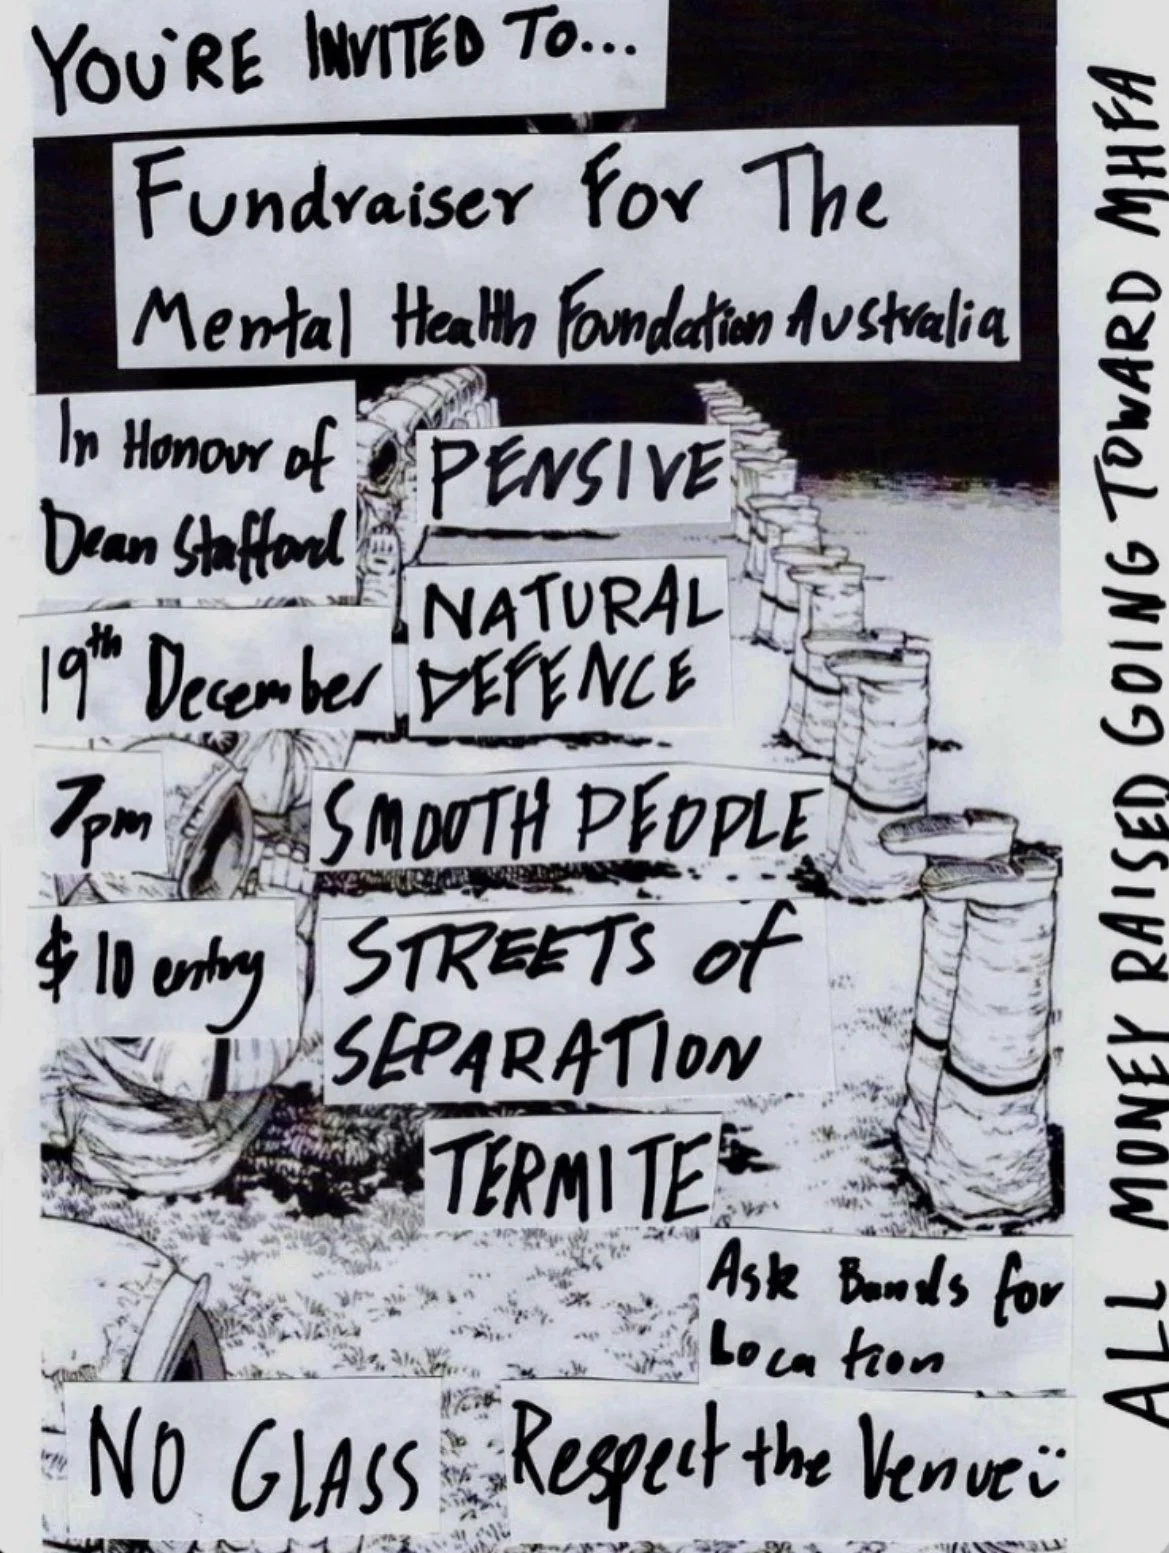 YOU'RE INVITED TO...
Fundraiser For The
Mental Health Foundation Australia
In Honour of
Dean Stafford
19th December
7pm
$10 entry
PENSIVE
NATURAL
DEFENCE
SMOOTH PEOPLE
STREETS of
SEPARATION
TERMITE
Ask Bands for
Location
NO GLASS
Respect the Venue :)
ALL MONEY RAISED GOING TOWARD MHFA